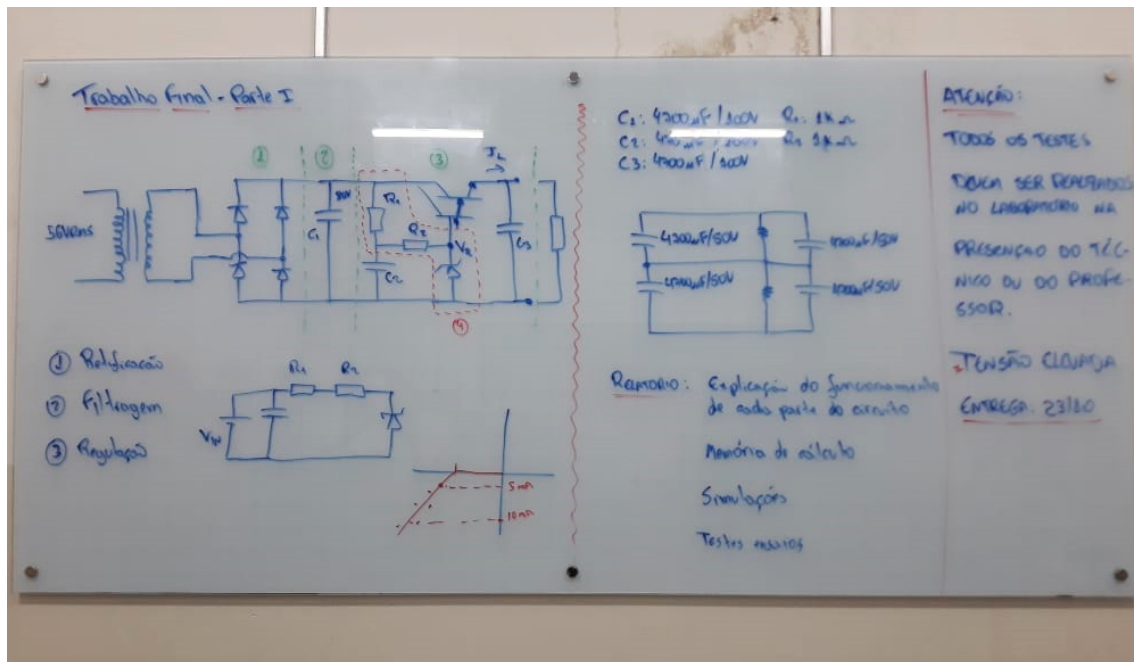 Trabalho Final - Parte I
① ② ③
56VRMS
C1
R1
R2
C2
Vz
IL
C3
④
① Retificação
② Filtragem
③ Regulação
R1 R2
VIN
5mA
10mA
C1: 4700µF/100V R1: 1KΩ
C2:
C3: 4700µF/100V
4700µF/50V
4700µF/50V
4700µF/50V
4700µF/50V
RELATORIO: Explicação do funcionamento
de cada parte do circuito
Memória de cálculo
Simulações
Testes ensaios
ATENÇÃO:
TODOS OS TESTES
DEVEM SER REALIZADOS
NO LABORATÓRIO NA
PRESENÇA DO TÉC-
NICO OU DO PROFE-
SSOR.
TENSÃO ELEVADA
ENTREGA: 23/10